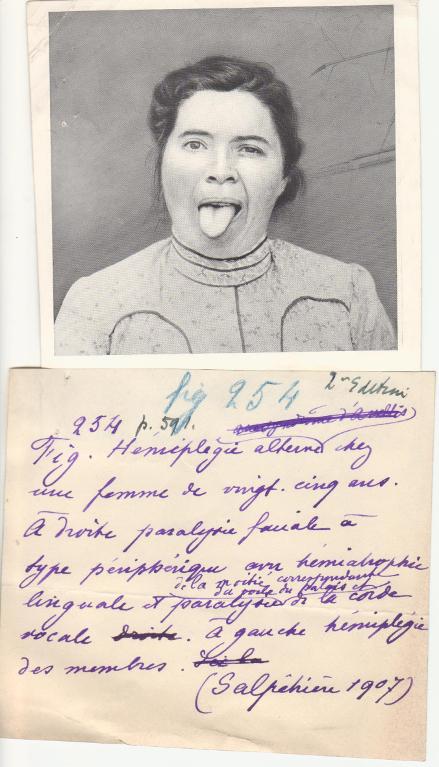 fig 254
2me Edition
254 p. 591.
Fig. Hémiplégie alterne chez
une femme de vingt-cinq ans.
À droite paralysie faciale à
type périphérique avec hémiatrophie
de la moitié correspondante
du voile du palais et
linguale et paralysie de la corde
vocale droite. À gauche hémiplégie
des membres.
(Salpêtrière 1907)